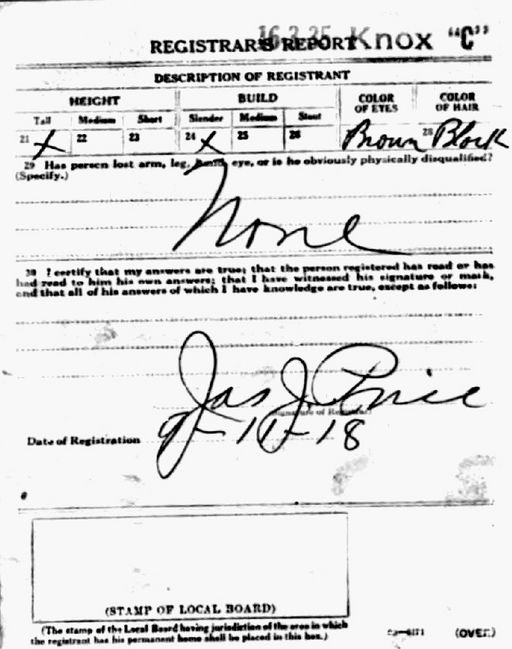 16-2-25 Knox "C"
REGISTRAR'S REPORT
DESCRIPTION OF REGISTRANT
HEIGHT BUILD COLOR OF EYES COLOR OF HAIR
Tall Medium Short Slender Medium Stout
21 X 22 23 24 X 25 26 Brown 28 Black
29 Has person lost arm, leg, hand, eye, or is he obviously physically disqualified?
(Specify.)
None
30 I certify that my answers are true; that the person registered has read or has
had read to him his own answers; that I have witnessed his signature or mark,
and that all of his answers of which I have knowledge are true, except as follows:
Jas J. Price
Signature of Registrar
Date of Registration 9-11-18
(STAMP OF LOCAL BOARD)
(The stamp of the Local Board having jurisdiction of the area in which
the registrant has his permanent home shall be placed in this box.)
(OVER)